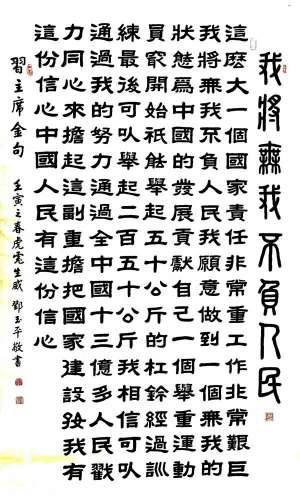 我將無我不負人民
這麽大一個國家責任非常重工作非常艱巨
我將無我不負人民我願意做到一個無我的
狀態為中國的發展貢獻自己一個舉重運動
員㝡開始祇能舉起五十公斤的杠鈴經過訓
練最後可以舉起二百五十公斤我相信可以
通過我的努力通過全中國十三億多人民戮
力同心來擔起這副重擔把國家建設好我有
這份信心中國人民有這份信心
習主席金句 壬寅之春虎虎生威 鄧玉平敬書